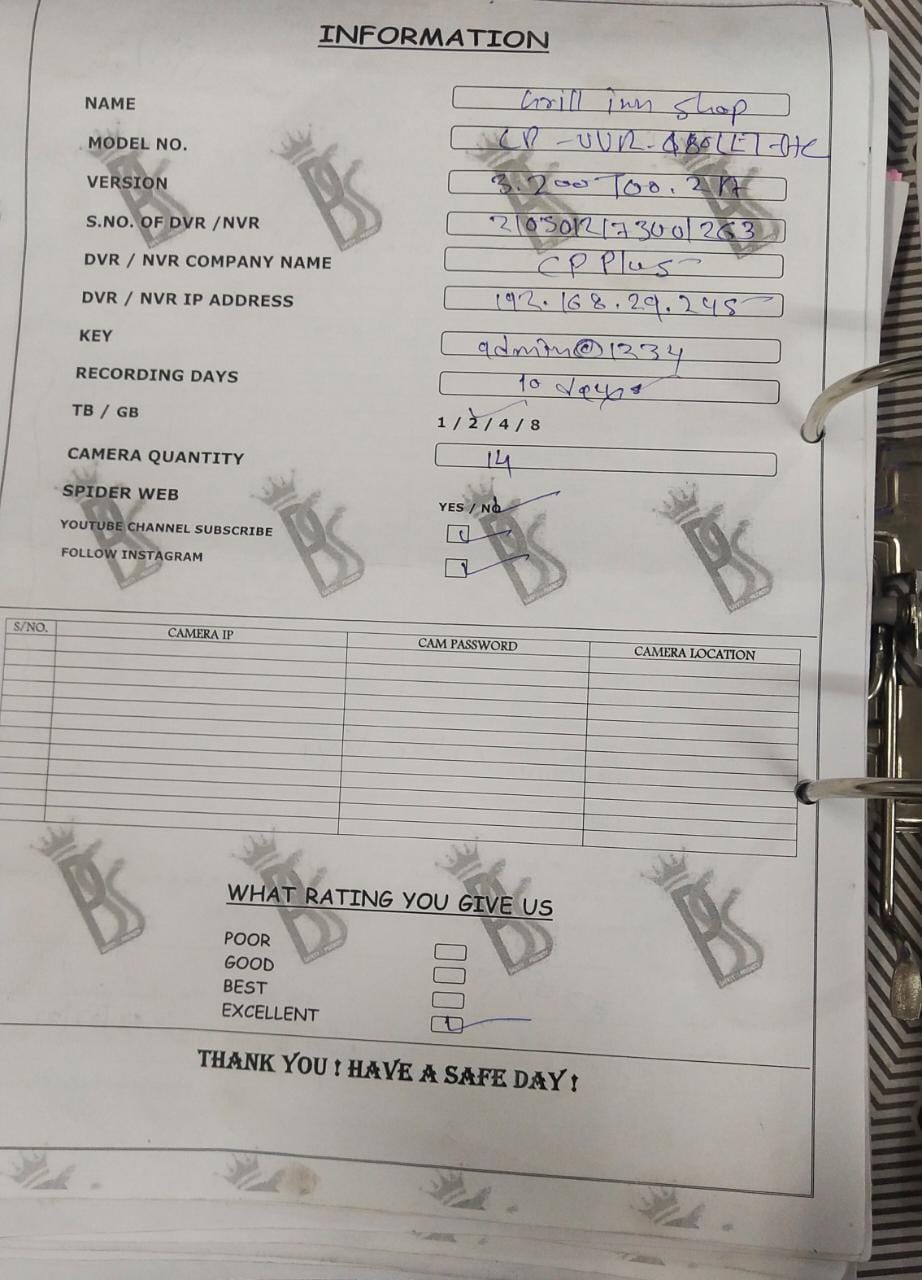 INFORMATION
NAME Grill inn Shop
MODEL NO.
VERSION
S.NO. OF DVR /NVR 2105012173001263
DVR / NVR COMPANY NAME CP Plus
DVR / NVR IP ADDRESS 192.168.29.245
KEY admin@1234
RECORDING DAYS 10 days
TB / GB 1 / 2 / 4 / 8
CAMERA QUANTITY 14
SPIDER WEB YES / NO
YOUTUBE CHANNEL SUBSCRIBE
FOLLOW INSTAGRAM
S/NO. CAMERA IP CAM PASSWORD CAMERA LOCATION
WHAT RATING YOU GIVE US
POOR
GOOD
BEST
EXCELLENT
THANK YOU ! HAVE A SAFE DAY !